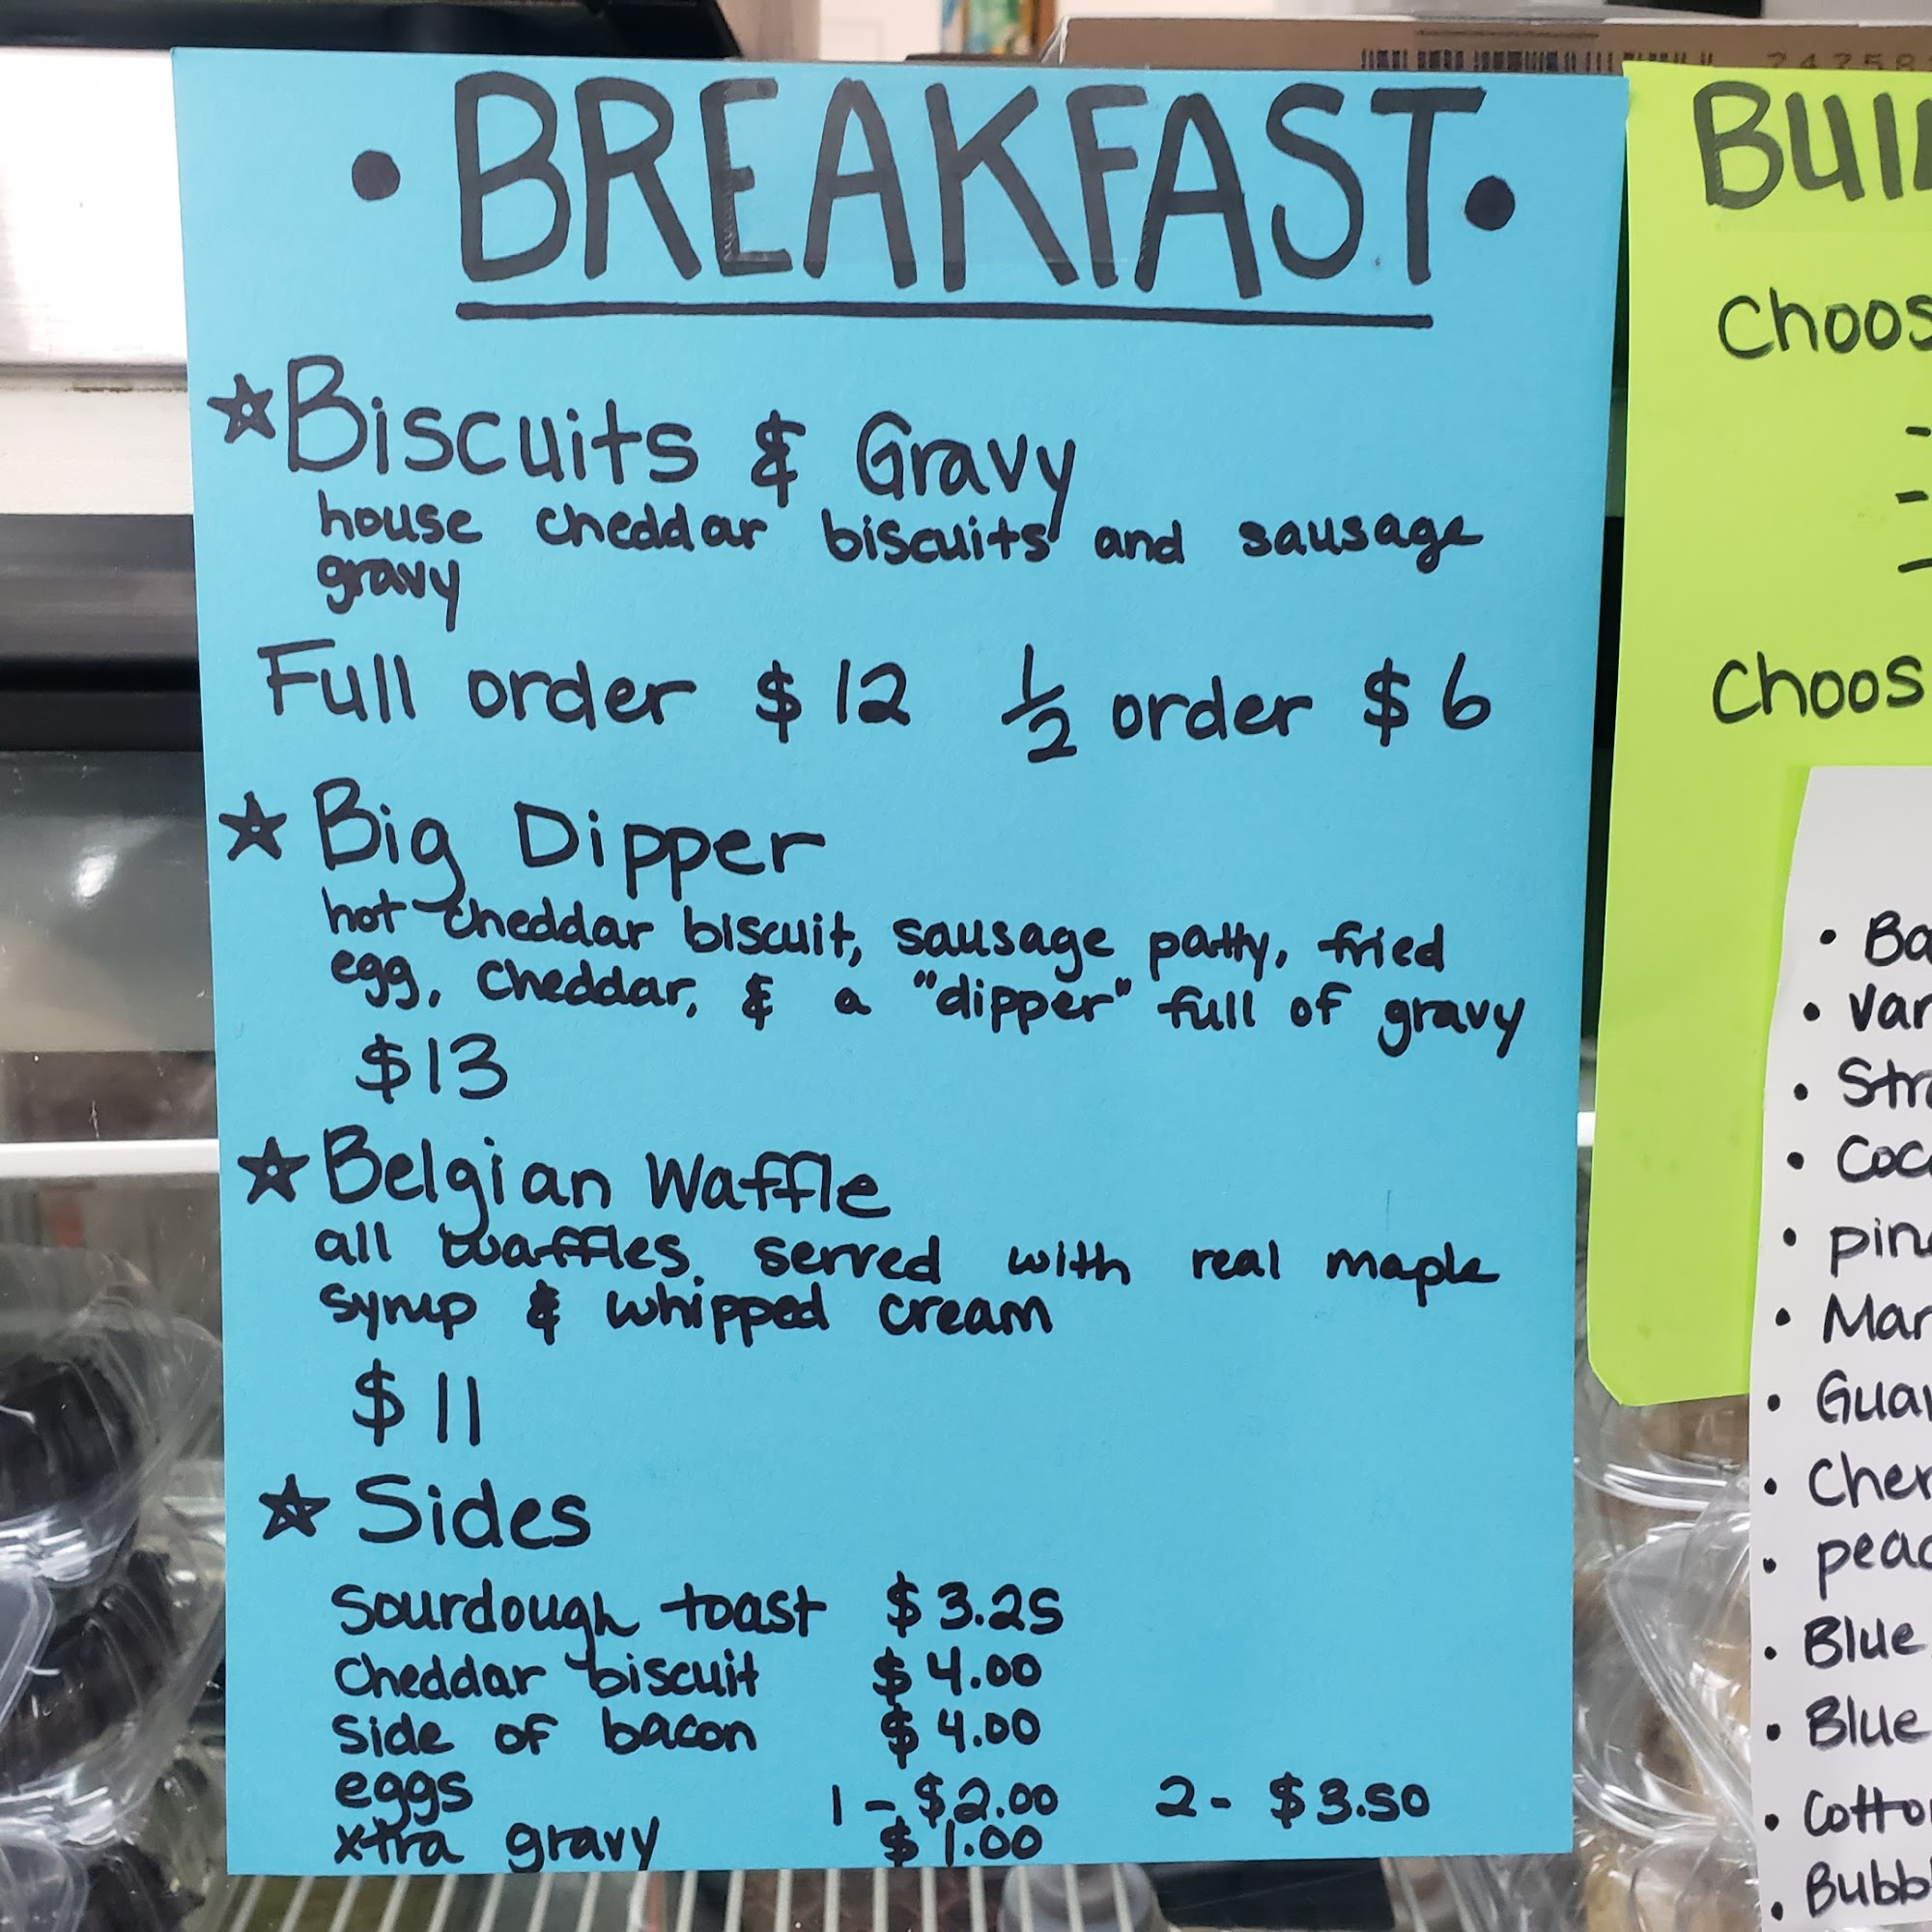 • BREAKFAST •
☆ Biscuits & Gravy
house cheddar biscuits and sausage
gravy
Full order $12 ½ order $6
☆ Big Dipper
hot cheddar biscuit, sausage patty, fried
egg, cheddar, & a "dipper" full of gravy
$13
☆ Belgian Waffle
all waffles served with real maple
syrup & whipped cream
$11
☆ Sides
Sourdough toast $3.25
Cheddar biscuit $4.00
side of bacon $4.00
eggs 1 - $2.00 2 - $3.50
xtra gravy $1.00
• Blue
• Blue